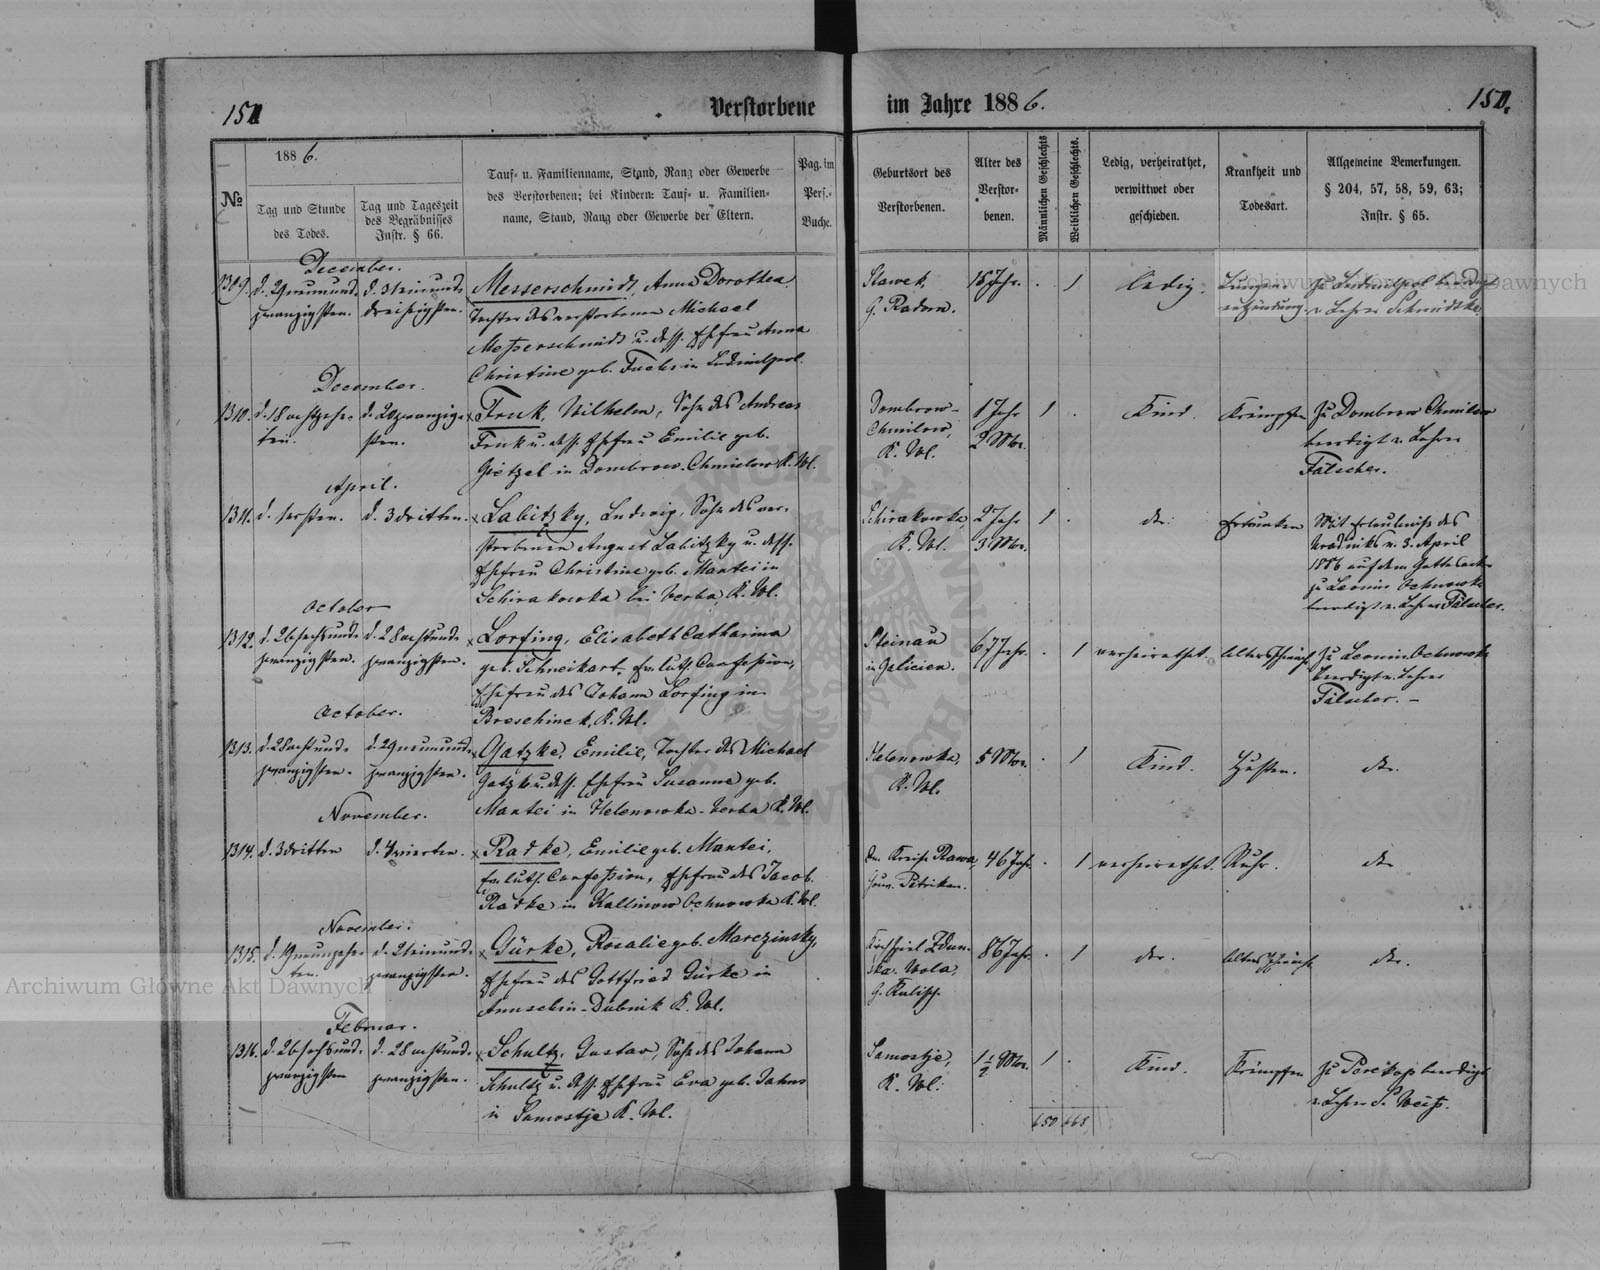 150
Verstorbene im Jahre 1886.
150.
№
1886.
Tag und Stunde
des Todes.
Tag und Tageszeit
des Begräbnisses
Instr. § 66.
Tauf- u. Familienname, Stand, Rang oder Gewerbe
des Verstorbenen; bei Kindern: Tauf- u. Familien-
name, Stand, Rang oder Gewerbe der Eltern.
Pag. im
Pers.-
Buche.
Geburtsort des
Verstorbenen.
Alter des
Verstor-
benen.
Männlichen Geschlechts
Weiblichen Geschlechts.
Ledig, verheirathet,
verwittwet oder
geschieden.
Krankheit und
Todesart.
Allgemeine Bemerkungen.
§ 204, 57, 58, 59, 63;
Instr. § 65.
December.
1309.
d. 29 neunund-
zwanzigsten.
d. 31 einund-
dreißigsten.
Messerschmidt, Anna Dorothea,
Tochter des verstorbenen Michael
Messerschmidt u. dess. Ehefrau Anna
Christine geb. Fuchs in Ludwilpol.
Slawek,
G. Radom.
1
ledig.
Lungen-
entzündung.
zu Ludwilpol beerdigt
v. Lehrer Schmidtke
December.
1310.
d. 18 achtzehn-
ten.
d. 20 zwanzig-
sten.
Fruk, Wilhelm, Sohn des Andreas
Fruk u. dess. Ehefrau Emilie geb.
Götzel in Dombrow-Chmielow K. Wl.
Dombrow-
Chmilow,
K. Wl.
1 Jahr
2 Mon.
1
Kind.
Krämpfen
zu Dombrow Chmilow
beerdigt v. Lehrer
Fälscher.
April.
1311.
d. 1 ersten.
d. 3 dritten.
Labitzky, Ludwig, Sohn des ver-
storbenen August Labitzky u. dess.
Ehefrau Christine geb. Mantei in
Schirakowka bei Verba, K. Wl.
Schirakowka
K. Wl.
2 Jahr
3 Mon.
1
do.
Ertrunken
Mit Erlaubniß des
Uradniks v. 3. April
1886 auf dem Gottesacker
zu Leonin Ochnowka
beerdigt v. Lehrer Fälscher.
October
1312.
d. 26 sechsund-
zwanzigsten.
d. 28 achtund-
zwanzigsten.
Lorfing, Elisabeth Catharina
geb. Schneikart, ev. luth. Confession,
Ehefrau des Johann Lorfing in
Breschinek, K. Wl.
Steinau
in Galicien.
67 Jahr.
1
verheirathet.
Altersschwäche
zu Leonin Ochnowka
beerdigt v. Lehrer
Fälscher. –
October.
1313.
d. 28 achtund-
zwanzigsten.
d. 29 neunund-
zwanzigsten.
Gatzke, Emilie, Tochter des Michael
Gatzke u. dess. Ehefrau Susanne geb.
Mantei in Helenowka-Verba K. Wl.
Helenowka,
K. Wl.
5 Mon.
1
Kind.
Husten.
do.
November.
1314.
d. 3 dritten
d. 4 vierten.
Radke, Emilie geb. Mantei,
ev. luth. Confession, Ehefrau des Jacob
Radke in Kallinow Ochnowka K. Wl.
Kreise Rawa,
Gouv. Petrikau.
46 Jahr.
1
verheirathet.
Ruhr.
do
November.
1315.
d. 19 neunzehn-
ten.
d. 21 einund-
zwanzigsten.
Gürke, Rosalie geb. Marczinsky,
Ehefrau des Gottfried Gürke in
Annuschin-Dubnik K. Wl.
Kirchspiel Zdun-
ska-Wola,
G. Kalisch.
86 Jahr.
1
do.
Altersschwäche
do.
Februar.
1316.
d. 26 sechsund-
zwanzigsten
d. 28 achtund-
zwanzigsten.
Schultz, Gustav, Sohn des Johann
Schultz u. dess. Ehefrau Eva geb. Jahns
in Samostje K. Wl.
Samostje,
K. Wl.
1 ½ Mon.
1
Kind.
Krämpfen
zu Perekop beerdigt
v. Lehrer P. Weiß.
650 668
Archiwum Główne Akt Dawnych
Archiwum Główne Akt Dawnych